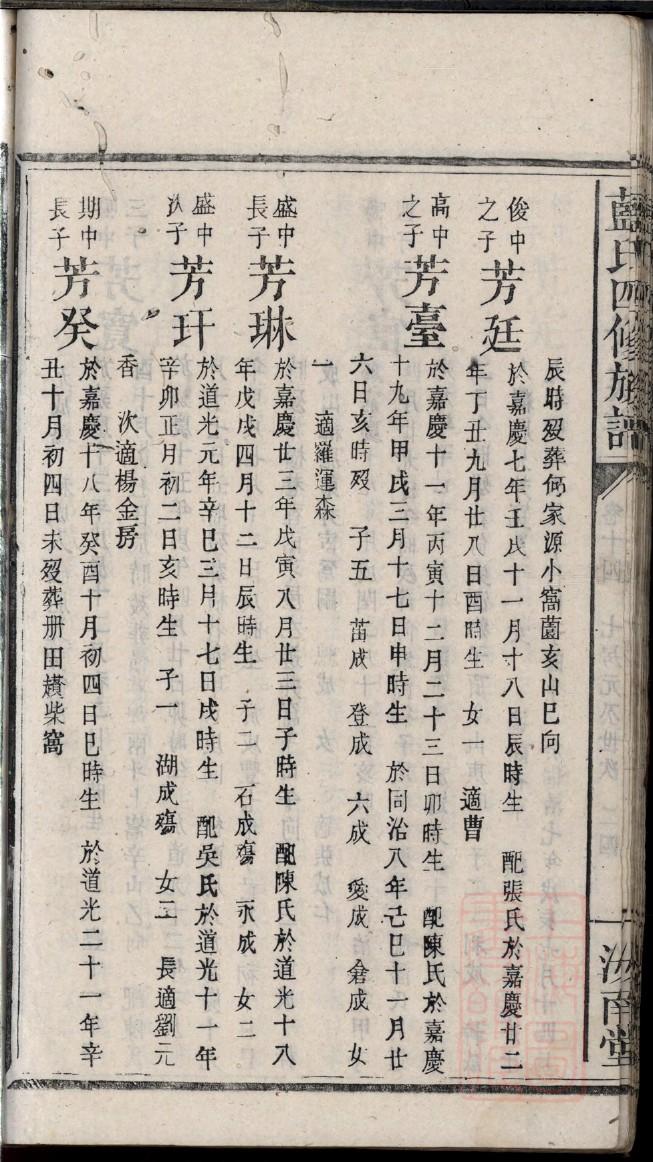 藍氏四修族譜
汝南堂
辰時歿葬何家源小窩薗亥山巳向
俊中之子 芳廷 於嘉慶七年壬戌十一月寸八日辰時生 配張氏於嘉慶廿二
年丁丑九月廿八日酉時生 女一 適曹
高中之子 芳臺 於嘉慶十一年丙寅十二月二十三日卯時生 配陳氏於嘉慶
十九年甲戌三月十七日申時生 於同治八年己巳十一月廿
六日亥時歿 子五 苗成 登成 六成 愛成 倉成 女
一 適羅運森
盛中長子 芳琳 於嘉慶廿三年戊寅八月廿三日子時生 配陳氏於道光十八
年戊戌四月十二日辰時生 子二 石成殤 永成 女二
盛中次子 芳玕 於道光元年辛巳三月十七日戌時生 配吳氏於道光十一年
辛卯正月初二日亥時生 子一 湖成殤 女二 長適劉元
香 次適楊金房
期中長子 芳癸 於嘉慶十八年癸酉十月初四日巳時生 於道光二十一年辛
丑十月初四日未歿葬册田墳柴窩